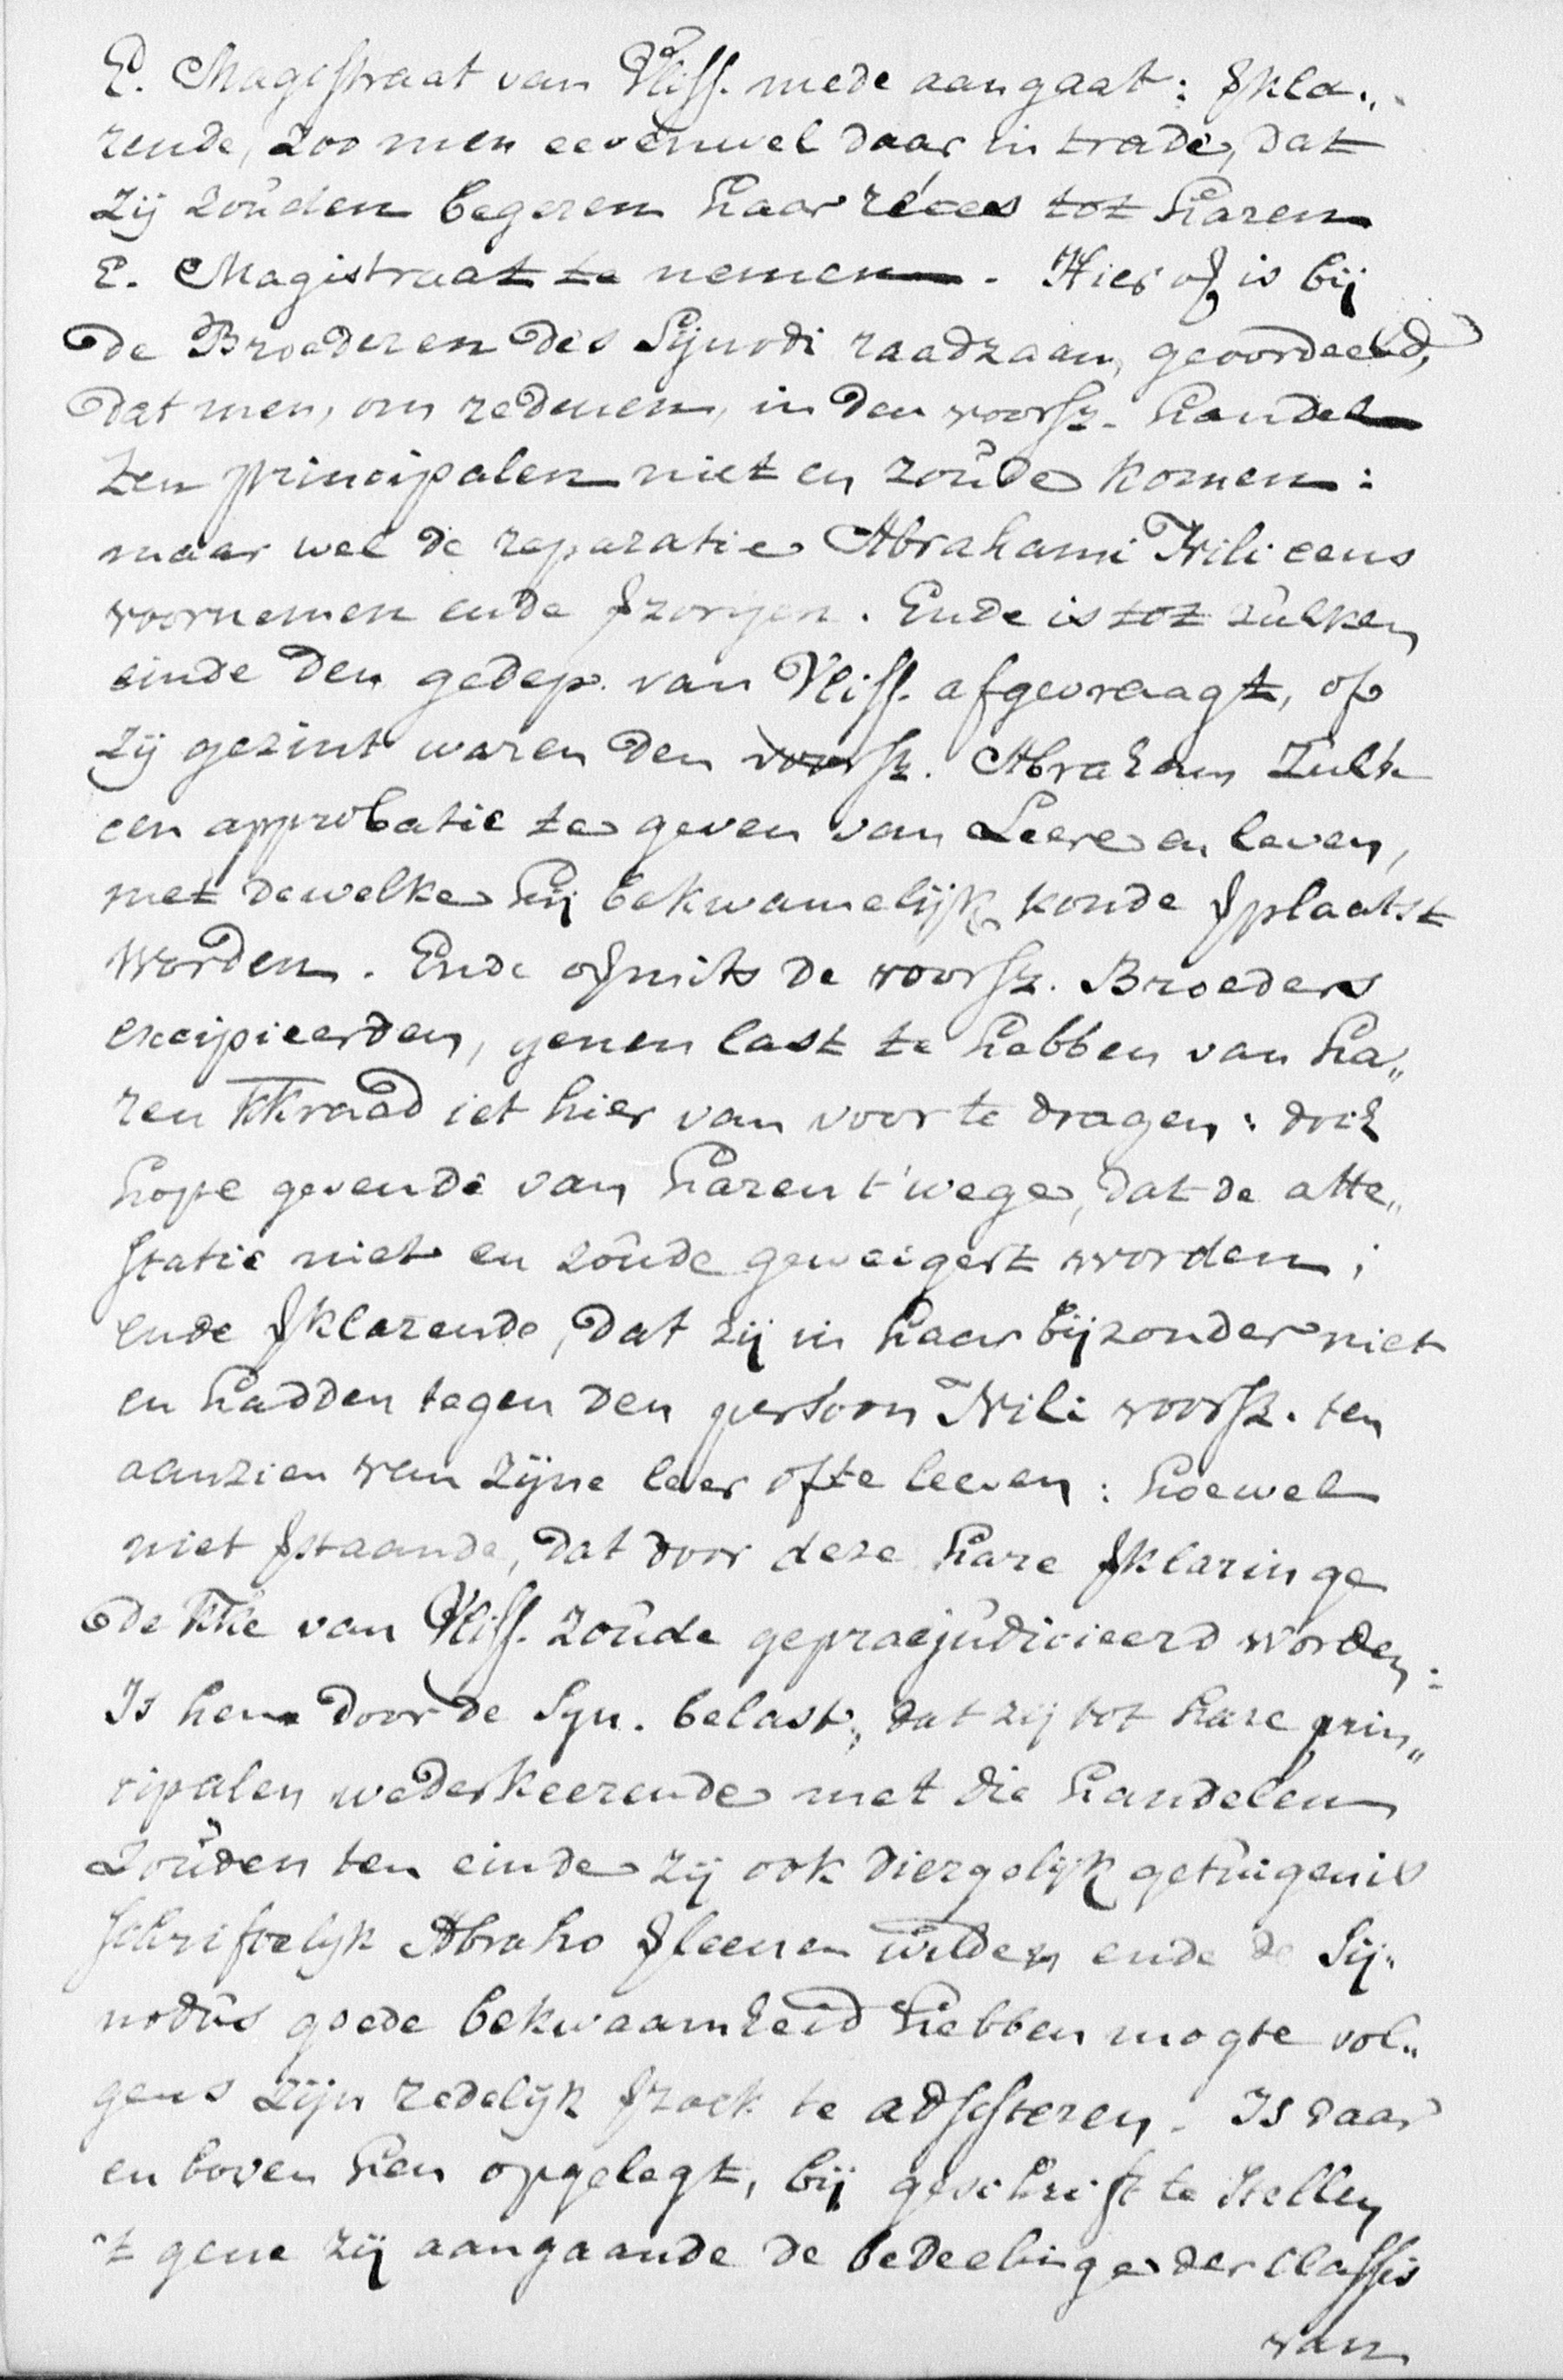 E. Magistraat van Vliss. mede aangaat: ꝟkla„
rende, zoo men eevenwel daar in trade, dat
zij zoûden begeren haar réces tot haren
E. Magistraat te nemen. Hier of is bij
de Broederen des Sijnodi raadzaam geoordeeld,
dat men, om redenen, in den voorsz. handel
ten principalen niet en zoûde komen:
maar wel de reparatie Abrahami Nili eens
voornemen ende ꝟzorgen. Ende is tot zûlken
einde den gedep. van Vliss. afgevraagt, of
zij gezint waren den voorsz. Abraham zulk
een approbatie te geven van Leere en leven,
met dewelke hij bekwamelijk konde ꝟplaatst
worden. Ende ofmits de voorsz. Broeders
excipieerden, genen last te hebben van ha„
ren kkraad iet hier van voor te dragen: doch
hope gevende van harent'wege, dat de atte„
statie niet en zoûde geweigert worden;
ende ꝟklarende, dat zij in haar bijzonder niet
en hadden tegen den persoon Nili voorsz. ten
aanzien van zijne leer ofte leeven: hoewel
niet ꝟstaande, dat door deze hare ꝟklaringe
de kke van Vliss. zoûde gepraejûdicieerd worden:
Is hen door de Syn. belast, dat zij tot hare prin„
cipalen wederkeerende met die handelen
zoûden ten einde zij ook diergelijk getûigenis
schriftelijk Abraho ꝟleenen wilden ende de Sij„
nodûs goede bekwaamheid hebben mogte vol„
gens zijn redelijk ꝟzoek te adsisteren. Is daar
en boven hen opgelegt, bij geschrift te stellen
't gene zij aangaande de bedeelinge der Classis
van